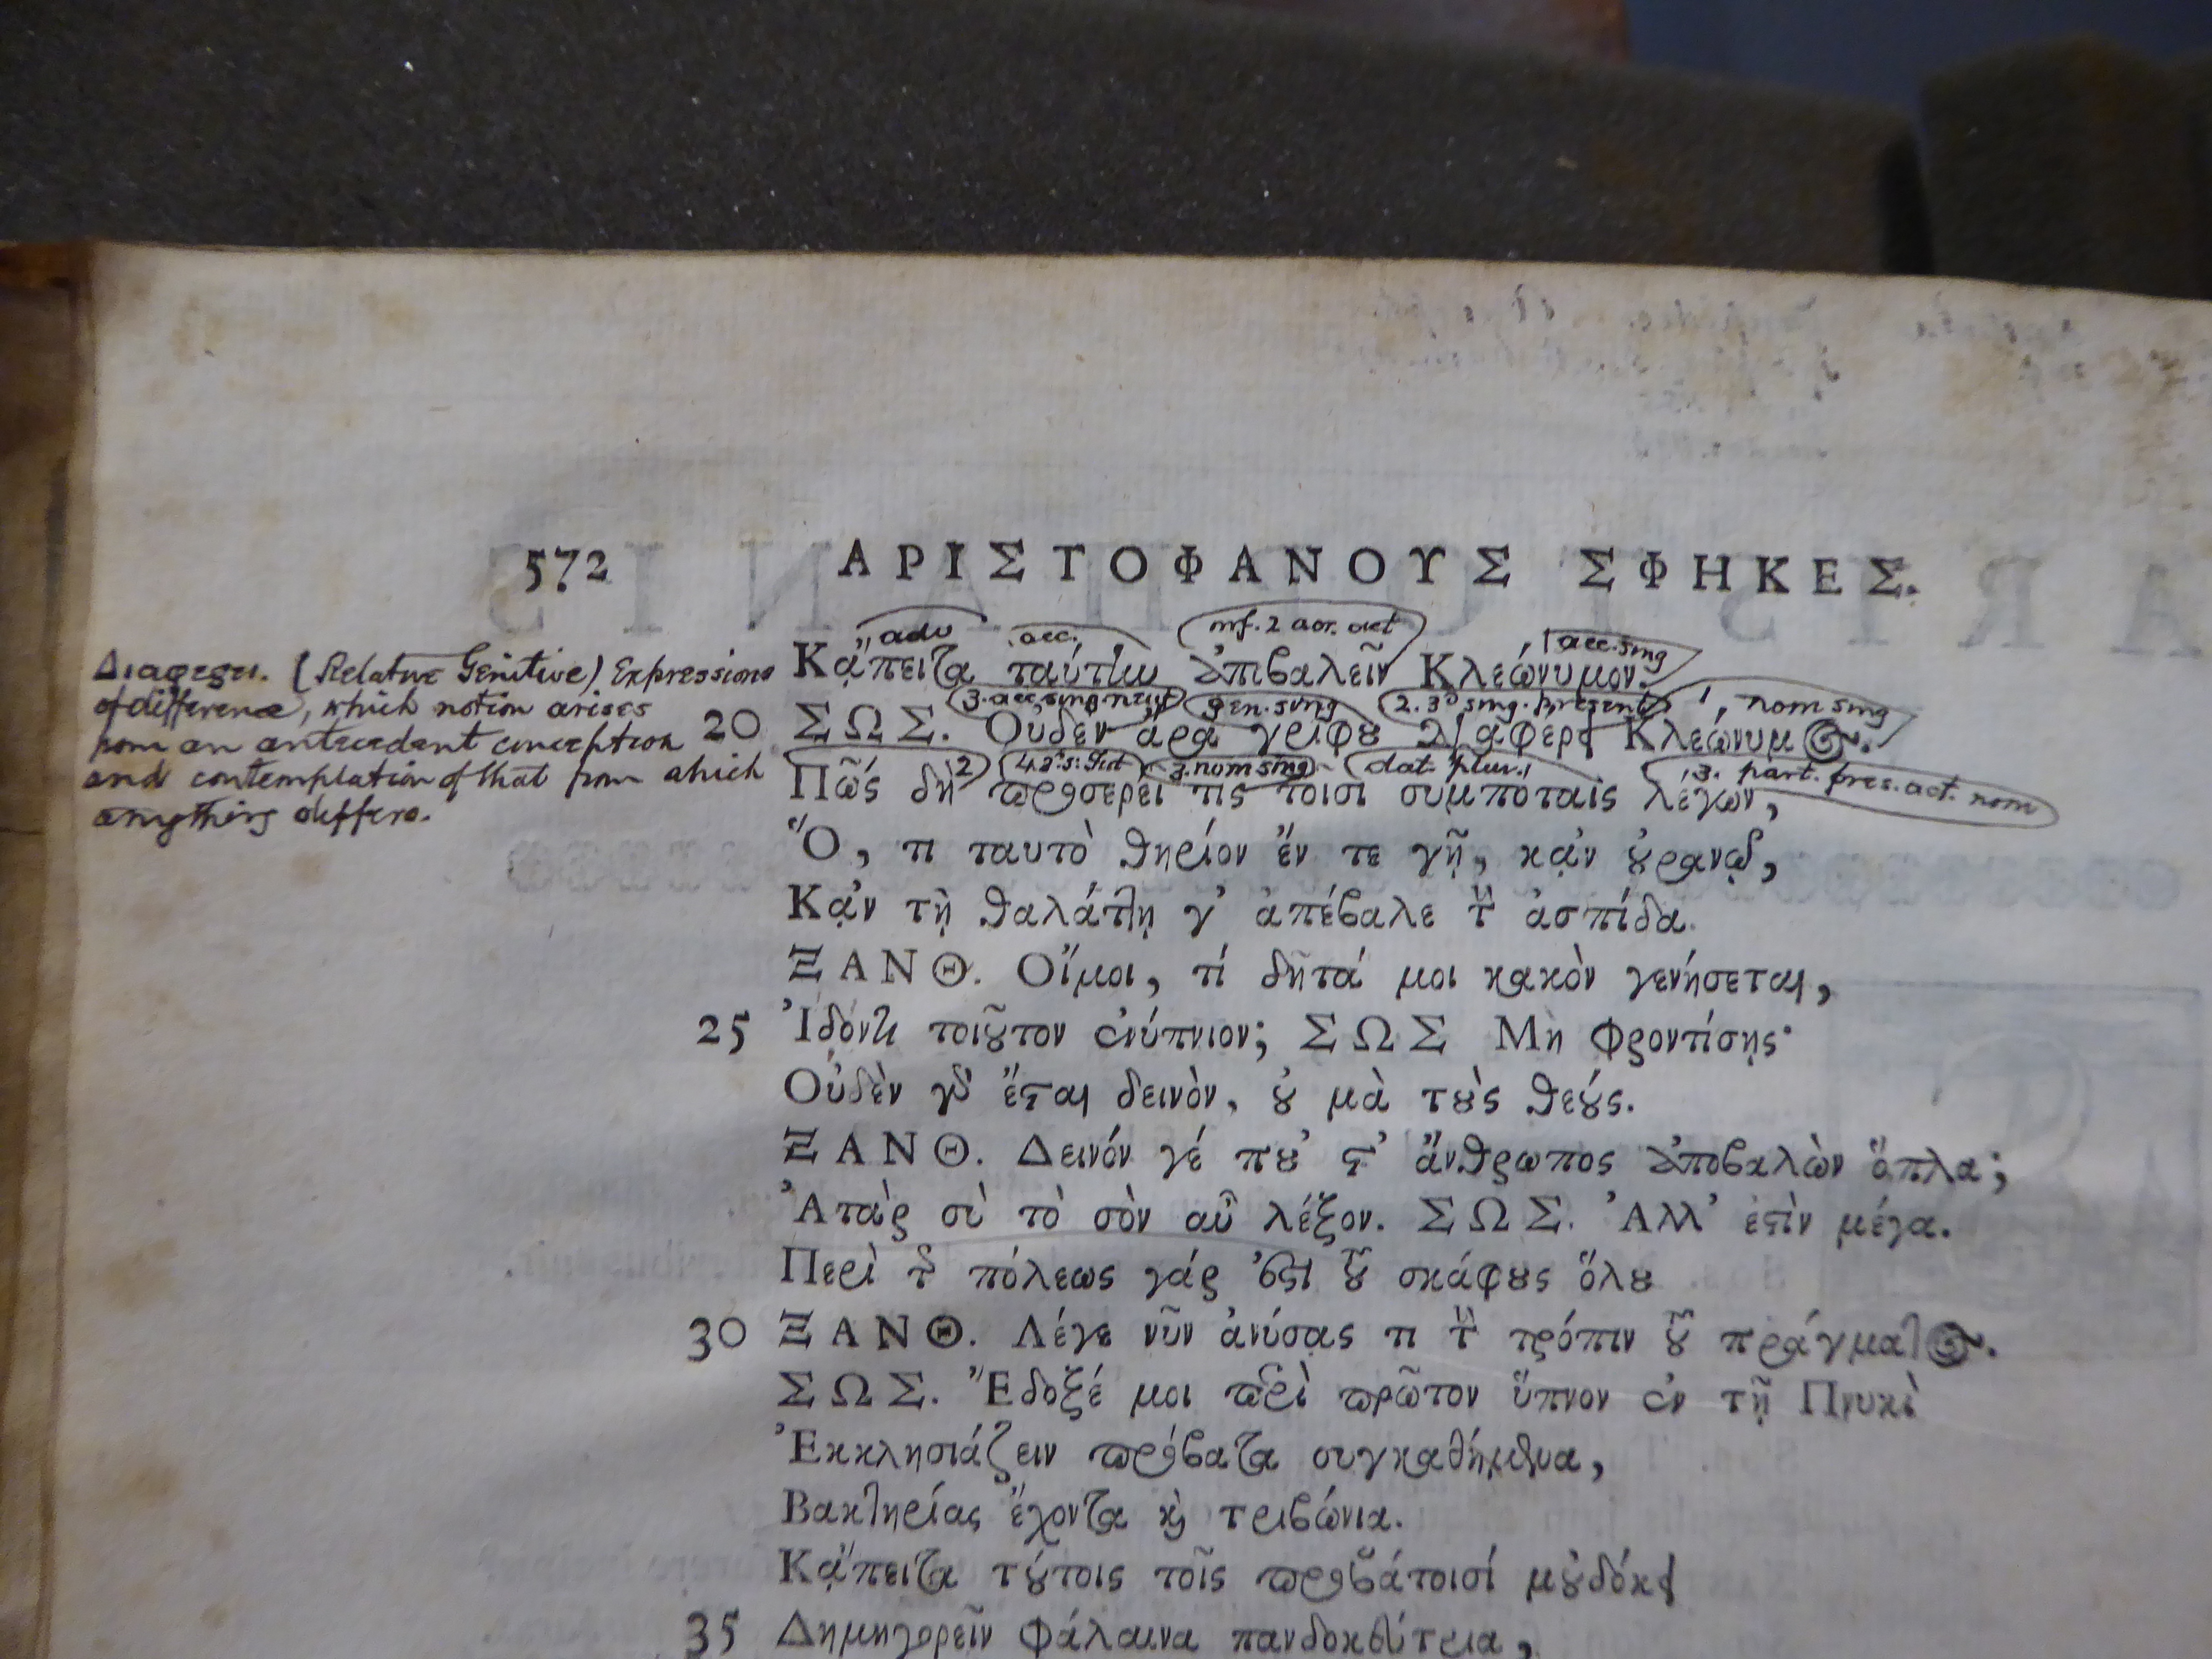 572 ΑΡΙΣΤΟΦΑΝΟΥΣ ΣΦΗΚΕΣ.
adv acc. inf. 2 aor. act 1 acc. sing
Κᾄπειτα ταύτην ἀποβαλεῖν Κλεώνυμον.
3. acc. sing. neut gen. sing 2. 3d sing. present 1, nom sing
20 ΣΩΣ. Οὐδὲν ἄρα γρίφου διαφέρει Κλεώνυμος.
2 3. nom sing dat. plur. 3. part. pres. act. nom
Πῶς δὴ προσερεῖ τις τοῖσι συμπόταις λέγων,
Διαφερει. (Relative Genitive) Expressions
of difference, which notion arises
from an antecedent conception
and contemplation of that from which
anything differs.
Ὅ, τι ταυτὸ θηρίον ἔν τε γῇ, κᾀν οὐρανῷ,
Κᾀν τῇ θαλάττῃ γ' ἀπέβαλε τὴν ἀσπίδα.
ΞΑΝΘ. Οἴμοι, τί δῆτά μοι κακὸν γενήσεται,
25 Ἰδόντι τοιοῦτον ἐνύπνιον; ΣΩΣ Μὴ φροντίσῃς·
Οὐδὲν γὰρ ἔσται δεινὸν, οὐ μὰ τοὺς θεούς.
ΞΑΝΘ. Δεινόν γέ που' στ' ἄνθρωπος ἀποβαλὼν ὅπλα;
Ἀτὰρ σὺ τὸ σὸν αὖ λέξον. ΣΩΣ. Ἀλλ' ἐστὶν μέγα.
Περὶ τῆς πόλεως γάρ ἐστι τοῦ σκάφους ὅλου
30 ΞΑΝΘ. Λέγε νῦν ἀνύσας τι τὴν τρόπιν τοῦ πράγματος.
ΣΩΣ. Ἔδοξέ μοι περὶ πρῶτον ὕπνον ἐν τῇ Πνυκὶ
Ἐκκλησιάζειν πρόβατα συγκαθήμενα,
Βακτηρίας ἔχοντα καὶ τριβώνια.
Κᾄπειτα τούτοις τοῖς προβάτοισί μοὐδόκει
35 Δημηγορεῖν φάλαινα πανδοκεύτρια,